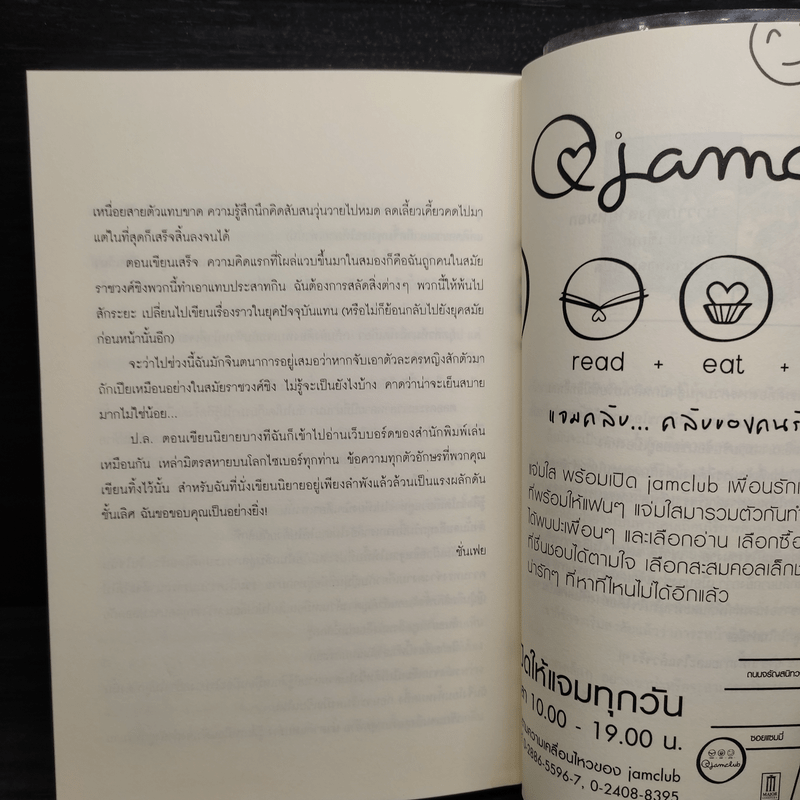 เหนื่อยสายตัวแทบขาด ความรู้สึกนึกคิดสับสนวุ่นวายไปหมด ลดเลี้ยวเคี้ยวคดไปมา
แต่ในที่สุดก็เสร็จสิ้นลงจนได้
ตอนเขียนเสร็จ ความคิดแรกที่โผล่แวบขึ้นมาในสมองก็คือฉันถูกคนในสมัย
ราชวงศ์ชิงพวกนี้ทำเอาแทบประสาทกิน ฉันต้องการสลัดสิ่งต่างๆ พวกนี้ให้พ้นไป
สักระยะ เปลี่ยนไปเขียนเรื่องราวในยุคปัจจุบันแทน (หรือไม่ก็ย้อนกลับไปยังยุคสมัย
ก่อนหน้านั้นอีก)
จะว่าไปช่วงนี้ฉันมักจินตนาการอยู่เสมอว่าหากจับเอาตัวละครหญิงสักตัวมา
ถักเปียเหมือนอย่างในสมัยราชวงศ์ชิง ไม่รู้จะเป็นยังไงบ้าง คาดว่าน่าจะเย็นสบาย
มากไม่ใช่น้อย...
ป.ล. ตอนเขียนนิยายบางทีฉันก็เข้าไปอ่านเว็บบอร์ดของสำนักพิมพ์เล่น
เหมือนกัน เหล่ามิตรสหายบนโลกไซเบอร์ทุกท่าน ข้อความทุกตัวอักษรที่พวกคุณ
เขียนทิ้งไว้นั้น สำหรับฉันที่นั่งเขียนนิยายอยู่เพียงลำพังแล้วล้วนเป็นแรงผลักดัน
ชั้นเลิศ ฉันขอขอบคุณเป็นอย่างยิ่ง!
ซั่นเฟย
@jamc
read + eat +
แจมคลับ... คลับของคนรั
แจ่มใส พร้อมเปิด jamclub เพื่อนรัก
ที่พร้อมให้แฟนๆ แจ่มใสมารวมตัวกันทำ
ได้พบปะเพื่อนๆ และเลือกอ่าน เลือกซื้อ
ที่ชื่นชอบได้ตามใจ เลือกสะสมคอลเล็ก
น่ารักๆ ที่หาที่ไหนไม่ได้อีกแล้ว
ปิดให้แจมทุกวัน
10.00 - 19.00 น.
ความเคลื่อนไหวของ jamclub
0-2886-5596-7, 0-2408-8395
ถนนจรัญสนิทว
ซอยแซมมี่
@jamclub
MAJOR